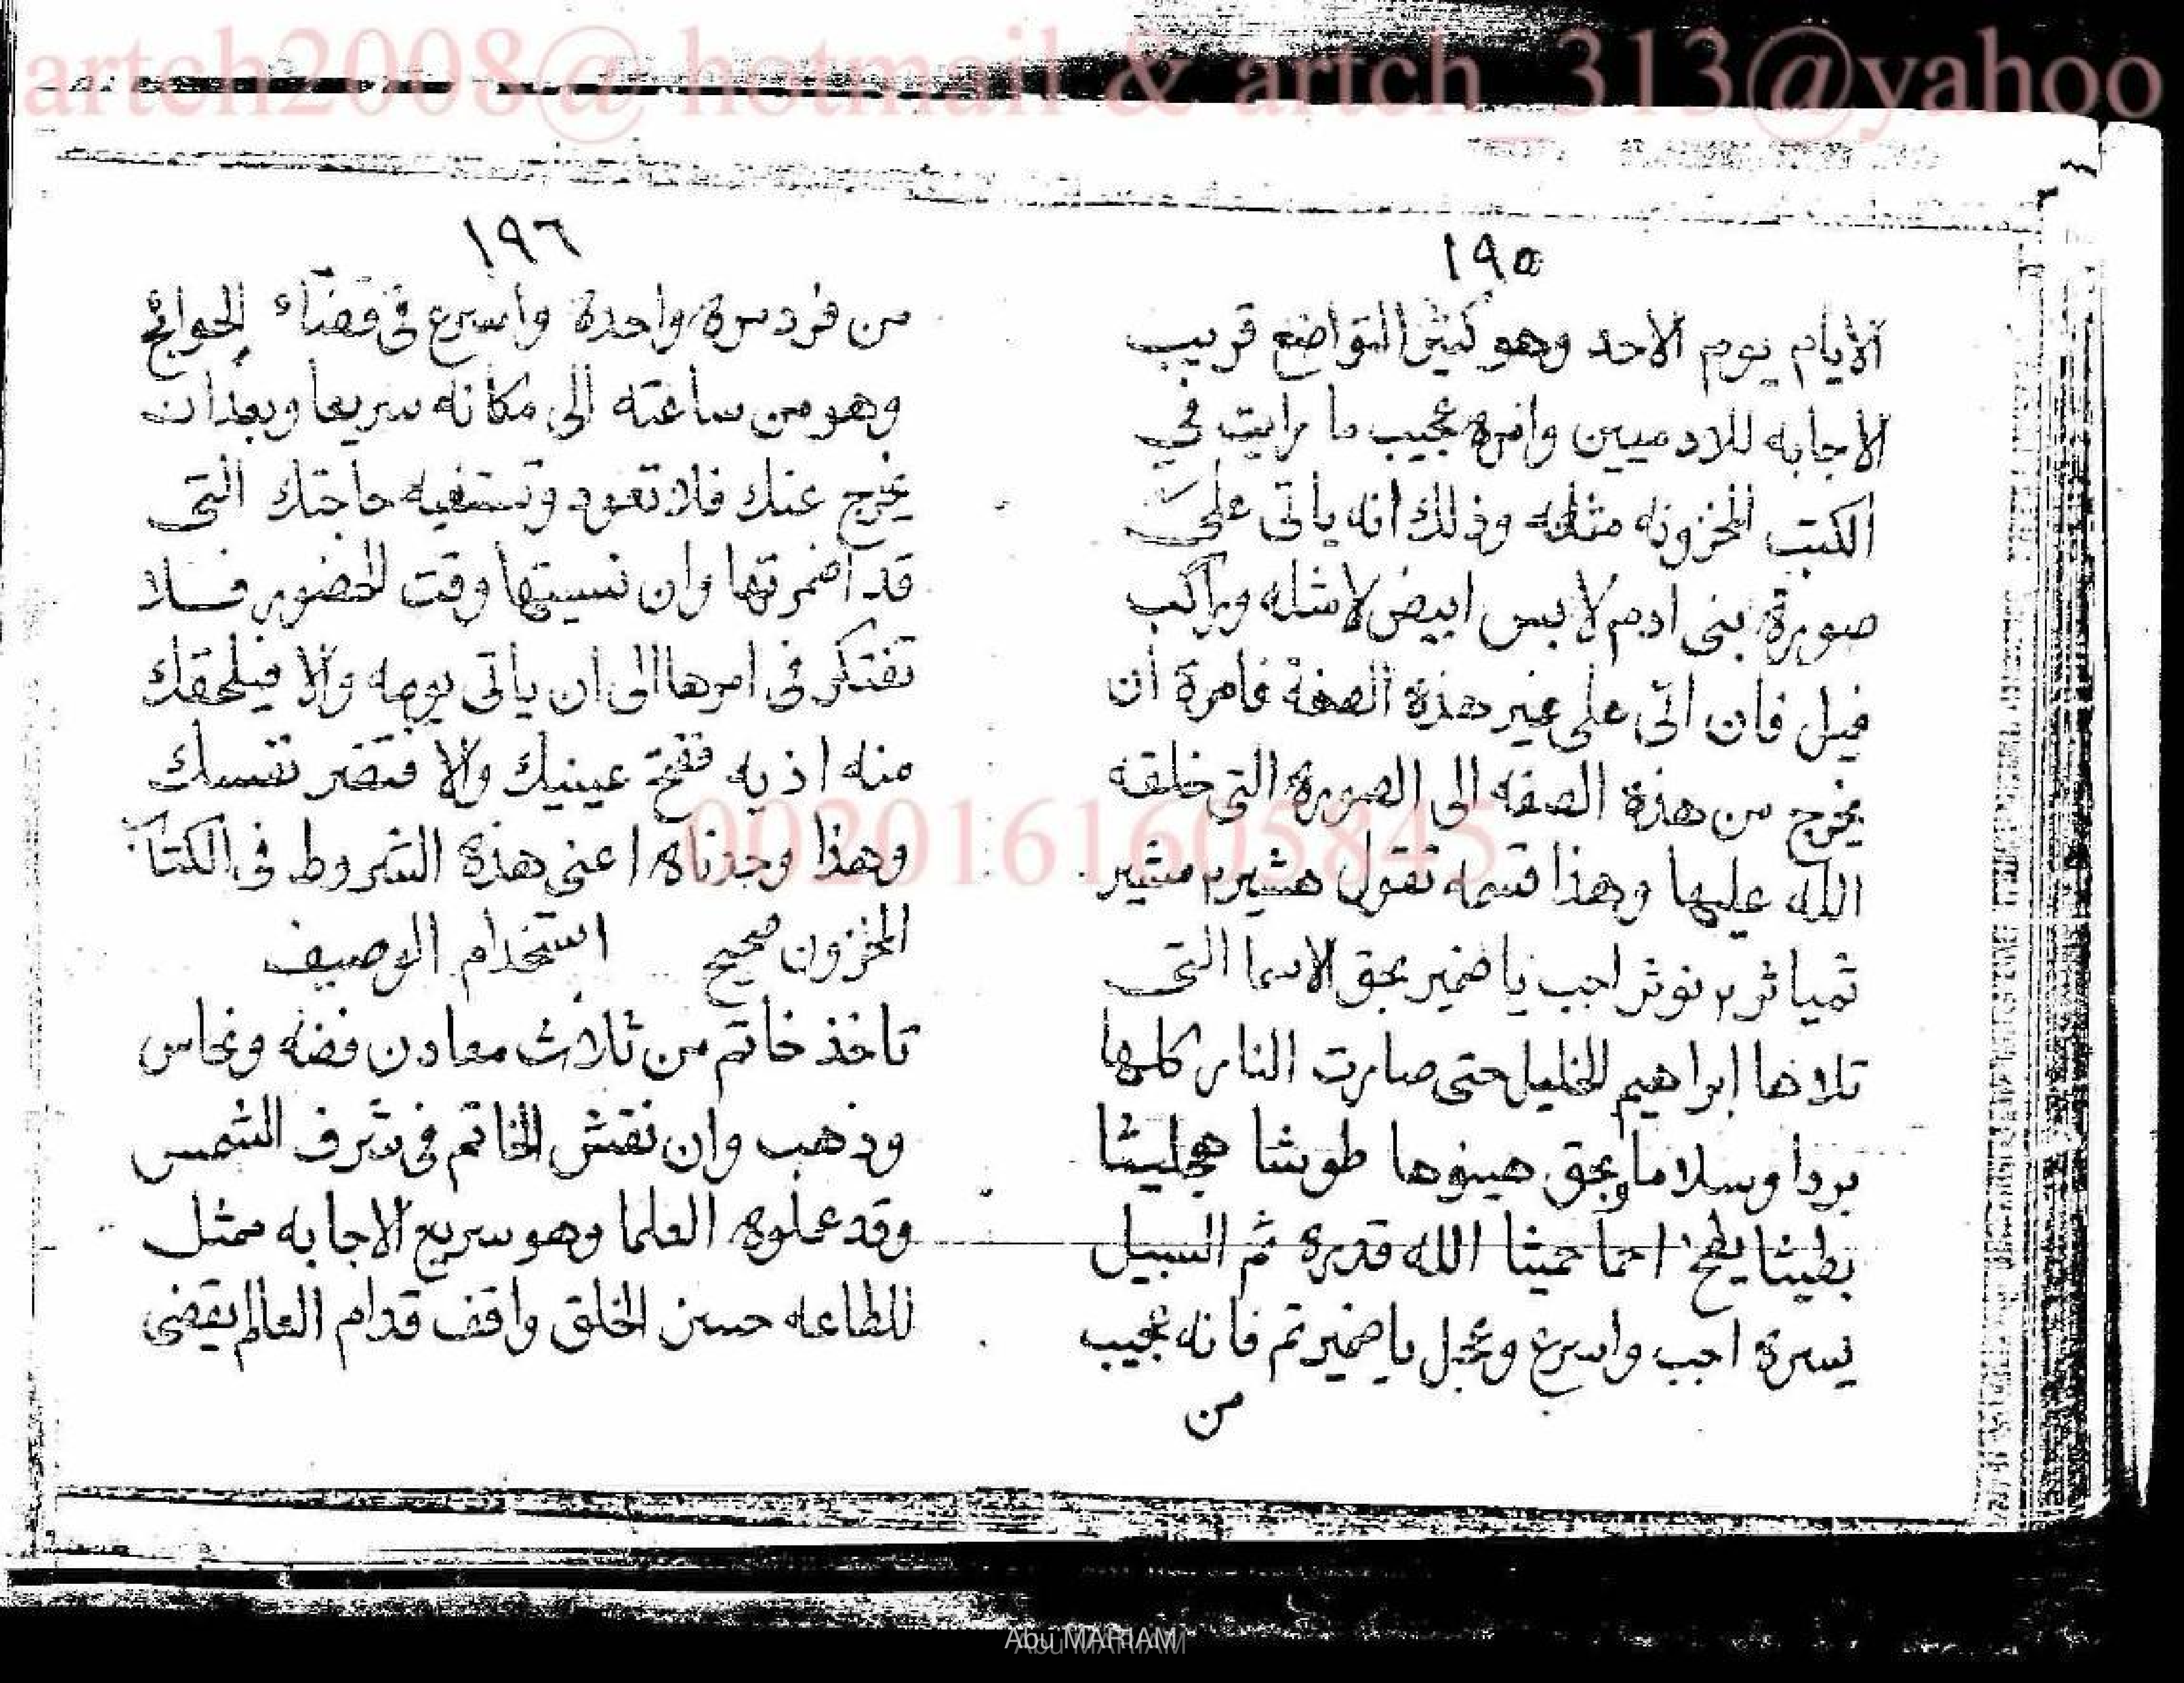 artch2008@ hotmail & artch_313@yahoo
١٩٥
الايام يوم الاحد وهو كثير التواضع قريب
الاجابه للادميين وامره عجيب ما رايت في
الكتب المخزونه مثله وذلك انه ياتى على
صورة بنى ادم لابس ابيض لاشله وراكب
فيل فان اتى على غير هذة الصفة فامرة ان
يخرج من هذة الصفه الى الصورة التى خلقه
الله عليها وهذا قسمه تقول هشيرم مشير
ثمياثرم نوثر اجب يا ضمير بحق الاسما التى
تلاها ابراهيم الخليل حتى صارت النار كلها
بردا وسلاما وبحق هينوها طوشا هجليشا
بطيشا يطخ احما حميثا الله قدره ثم السبيل
يسرة اجب واسرع وعجل يا ضمير تم فانه عجيب
من
١٩٦
من فرد مرة واحدة واسرع فى قضاء الحوائج
وهو من ساعته الى مكانه سريعا وبعد ان
يخرج عنك فلا تعود وتستفيه حاجتك التى
قد اضمرتها وان نسيتها وقت الحضور فلا
تفتكر فى امرها الى ان ياتى يومه والا فيلحقك
منه اذيه فتفتح عينيك والا فتضر نفسك
وهذا وجدناه اعنى هذة الشروط فى الكتاب
المخزون صحيح استخدام الوصيف
تاخذ خاتم من ثلاث معادن فضه ونحاس
وذهب وان نقش الخاتم فى شرف الشمس
وقد عملوه العلما وهو سريع الاجابه ممثل
للطاعه حسن الخلق واقف قدام العالم يقضى
00201616 05845
Abu MARIAM